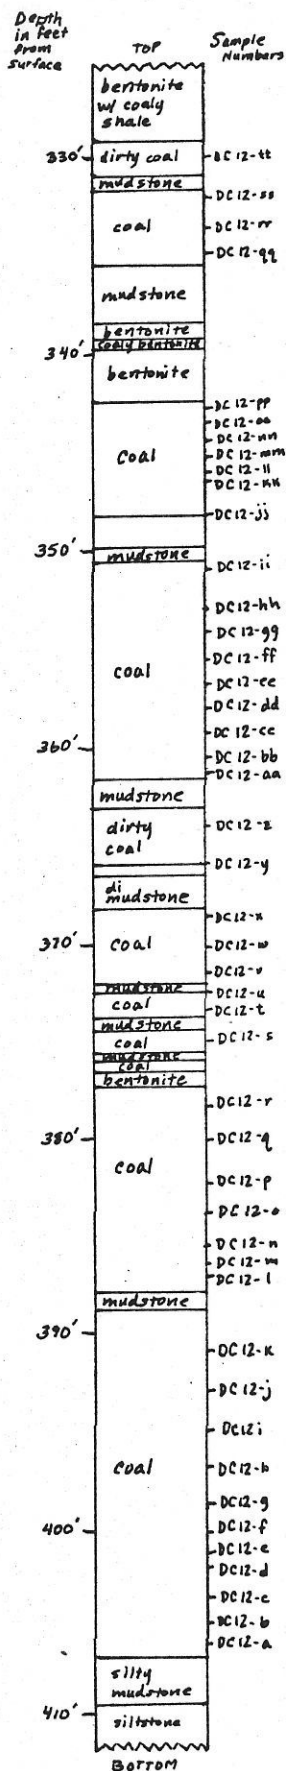 Depth
in feet
from
surface
TOP
Sample
Numbers
bentonite
w/ coaly
shale
330'
dirty coal
DC 12-tt
mudstone
DC 12-ss
coal
DC 12-rr
DC 12-qq
mudstone
bentonite
340'
coaly bentonite
bentonite
DC 12-pp
DC 12-oo
DC 12-nn
coal
DC 12-mm
DC 12-ll
DC 12-kk
DC 12-jj
350'
mudstone
DC 12-ii
DC 12-hh
DC 12-gg
DC 12-ff
coal
DC 12-ee
DC 12-dd
DC 12-cc
360'
DC 12-bb
DC 12-aa
mudstone
dirty
coal
DC 12-z
DC 12-y
di
mudstone
DC 12-x
370'
coal
DC 12-w
DC 12-v
mudstone
DC 12-u
coal
DC 12-t
mudstone
coal
DC 12-s
mudstone
coal
bentonite
DC 12-r
380'
DC 12-q
coal
DC 12-p
DC 12-o
DC 12-n
DC 12-m
DC 12-l
mudstone
390'
DC 12-k
DC 12-j
DC12i
coal
DC 12-h
DC 12-g
400'
DC 12-f
DC 12-e
DC 12-d
DC 12-c
DC 12-b
DC 12-a
silty
mudstone
410'
siltstone
BOTTOM